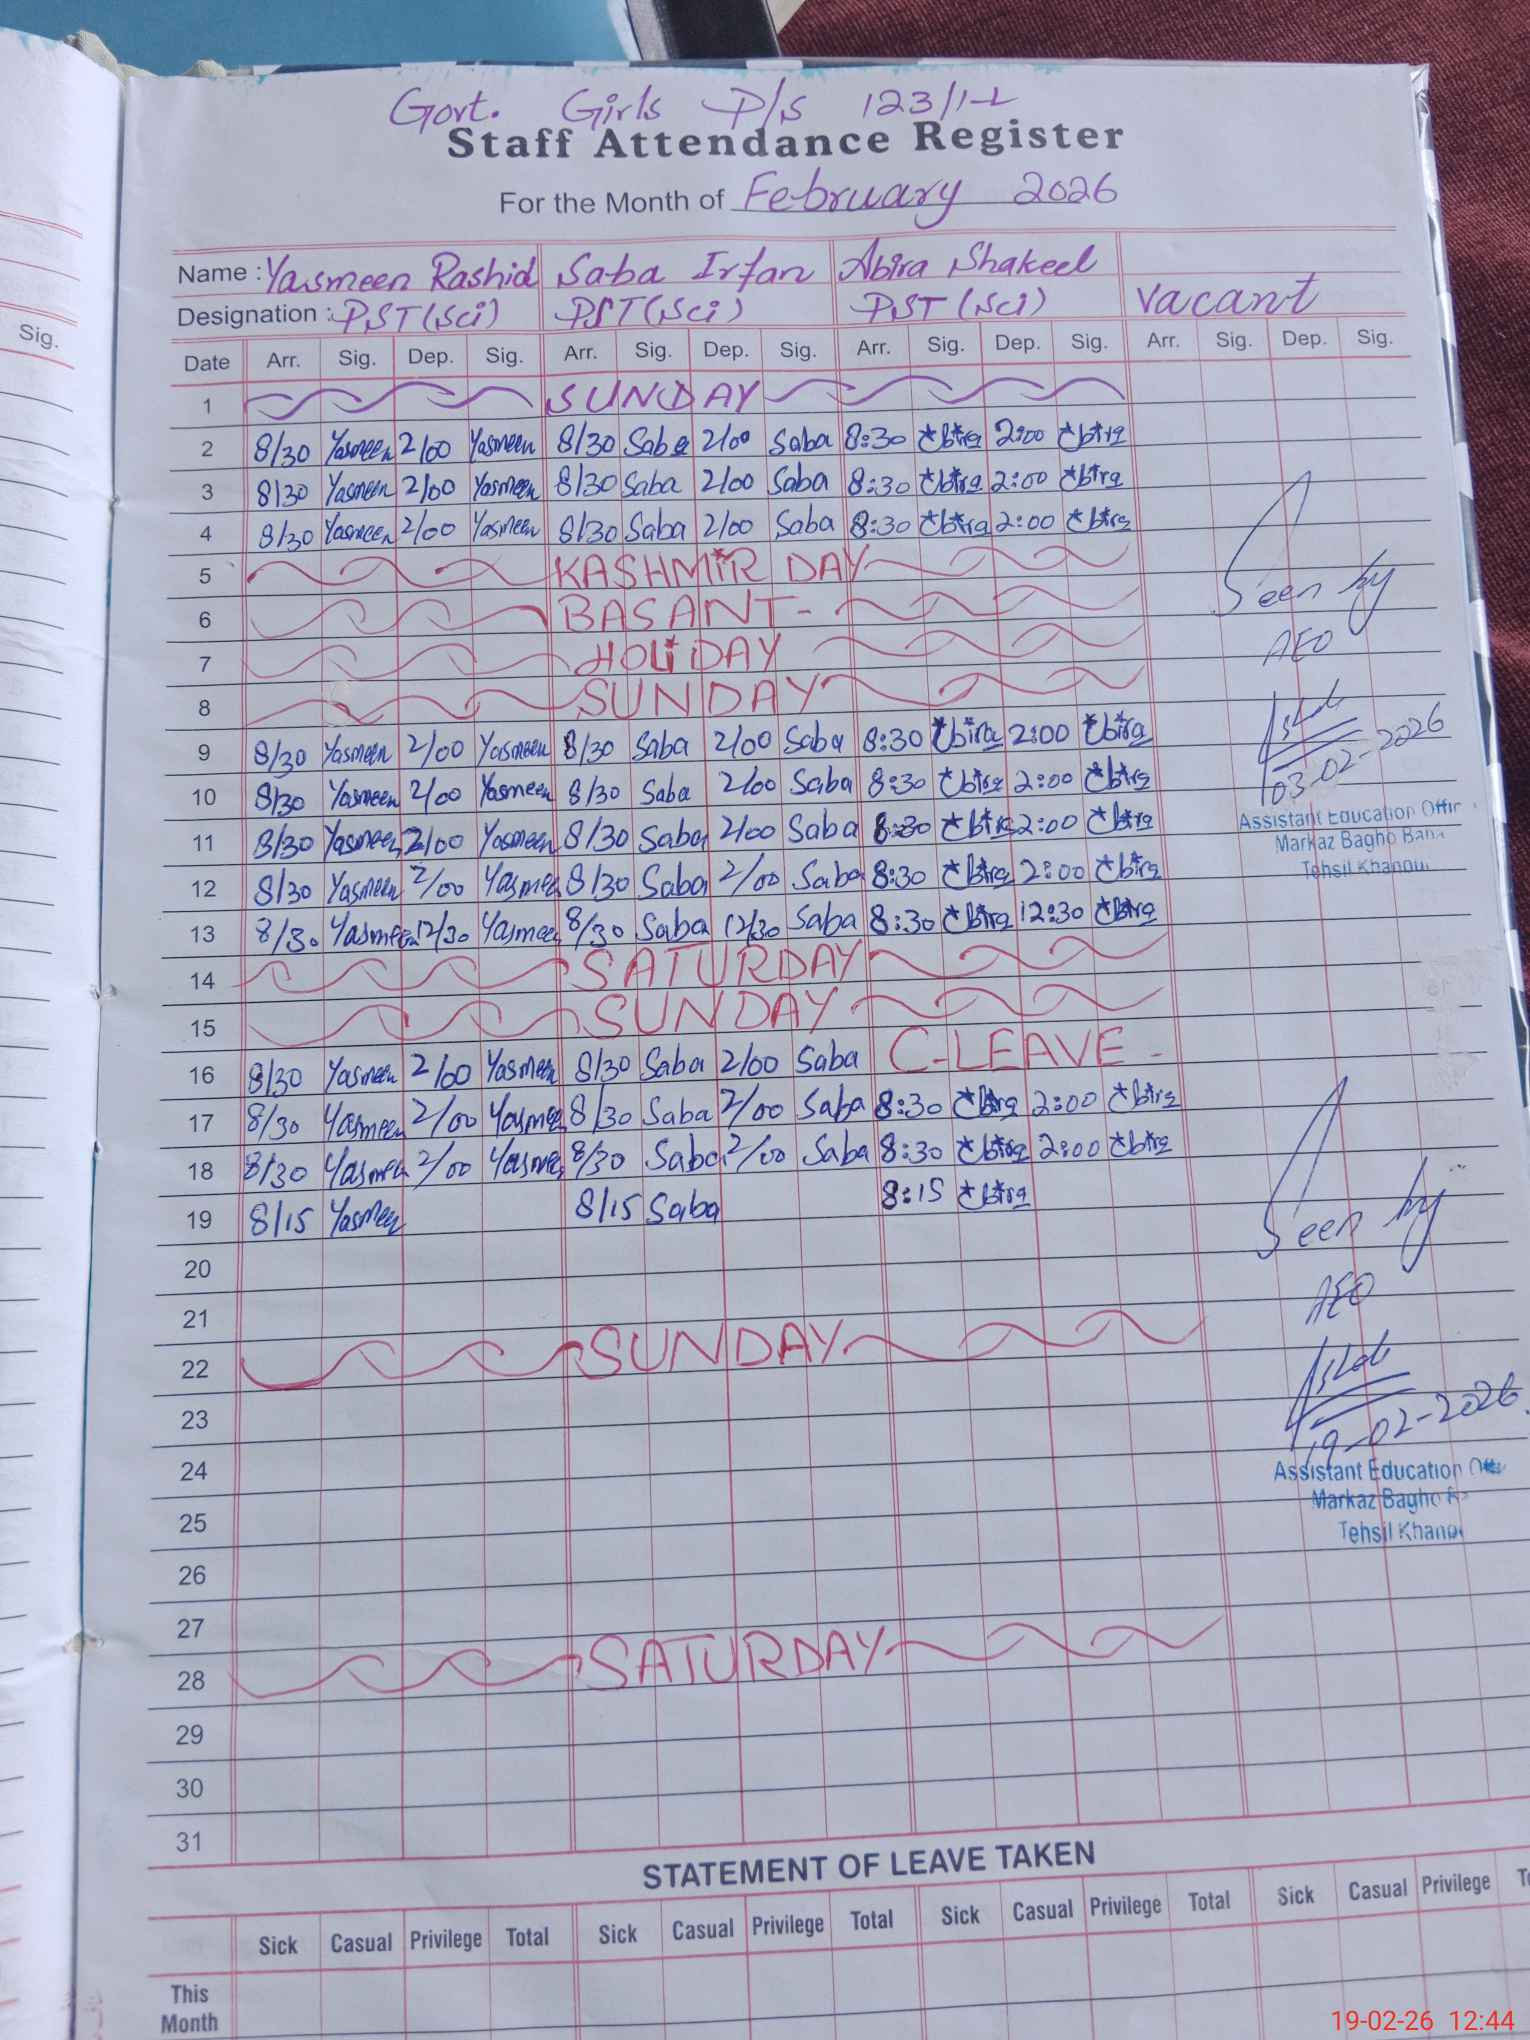 Govt. Girls P/S 123/1-L
Staff Attendance Register
For the Month of February 2026
Name : Yasmeen Rashid Saba Irfan Abira Shakeel
Designation : PST(Sci) PST(Sci) PST(Sci) Vacant
Sig.
Date Arr. Sig. Dep. Sig. Arr. Sig. Dep. Sig. Arr. Sig. Dep. Sig. Arr. Sig. Dep. Sig.
1 SUNDAY
2 8/30 Yasmeen 2/00 Yasmeen 8/30 Saba 2/00 Saba 8:30 Abira 2:00 Abira
3 8/30 Yasmeen 2/00 Yasmeen 8/30 Saba 2/00 Saba 8:30 Abira 2:00 Abira
4 8/30 Yasmeen 2/00 Yasmeen 8/30 Saba 2/00 Saba 8:30 Abira 2:00 Abira
5 KASHMIR DAY
6 BASANT-
7 HOLIDAY
8 SUNDAY
Seen by
AEO
9 8/30 Yasmeen 2/00 Yasmeen 8/30 Saba 2/00 Saba 8:30 Abira 2:00 Abira
03-02-2026
10 8/30 Yasmeen 2/00 Yasmeen 8/30 Saba 2/00 Saba 8:30 Abira 2:00 Abira
11 8/30 Yasmeen 2/00 Yasmeen 8/30 Saba 2/00 Saba 8:30 Abira 2:00 Abira
Assistant Education Offic
Markaz Bagho Baha
Tehsil Khanew
12 8/30 Yasmeen 2/00 Yasmeen 8/30 Saba 2/00 Saba 8:30 Abira 2:00 Abira
13 8/30 Yasmeen 12/30 Yasmeen 8/30 Saba 12/30 Saba 8:30 Abira 12:30 Abira
14 SATURDAY
15 SUNDAY
16 8/30 Yasmeen 2/00 Yasmeen 8/30 Saba 2/00 Saba C-LEAVE-
17 8/30 Yasmeen 2/00 Yasmeen 8/30 Saba 2/00 Saba 8:30 Abira 2:00 Abira
18 8/30 Yasmeen 2/00 Yasmeen 8/30 Saba 2/00 Saba 8:30 Abira 2:00 Abira
19 8/15 Yasmeen 8/15 Saba 8:15 Abira
Seen by
20
AEO
21
22 SUNDAY
23
19-02-2026
24
Assistant Education
Markaz Bagho
Tehsil Khanew
25
26
27
28 SATURDAY
29
30
31
STATEMENT OF LEAVE TAKEN
Sick Casual Privilege Total Sick Casual Privilege Total Sick Casual Privilege Total Sick Casual Privilege
This
Month
19-02-26 12:44